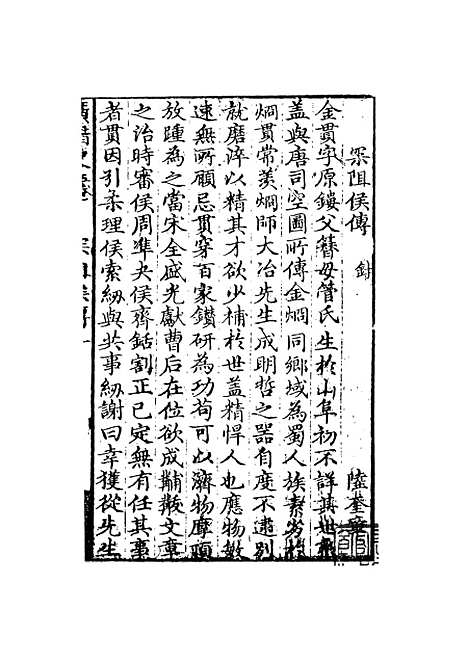 罙阻侯傳 針 陸奎章
金貫字原鏤父簪母管氏生於山阜初不詳其世
盖與唐司空圖所傳金烱同鄉域為蜀人族素劣於
烱貫常羡烱師大冶先生成明哲之器自度不逮別
就磨淬以精其才欲少補於世盖精悍人也應物敏
速無所顧忌貫穿百家鑽研為功苟可以濟物摩頂
放踵為之當宋全盛光獻曹后在位欲成黼黻文章
之治時審侯周準夬侯齊銛割正已定無有任其事
者貫因引柔理侯索紉與共事紉謝曰幸獲從先生